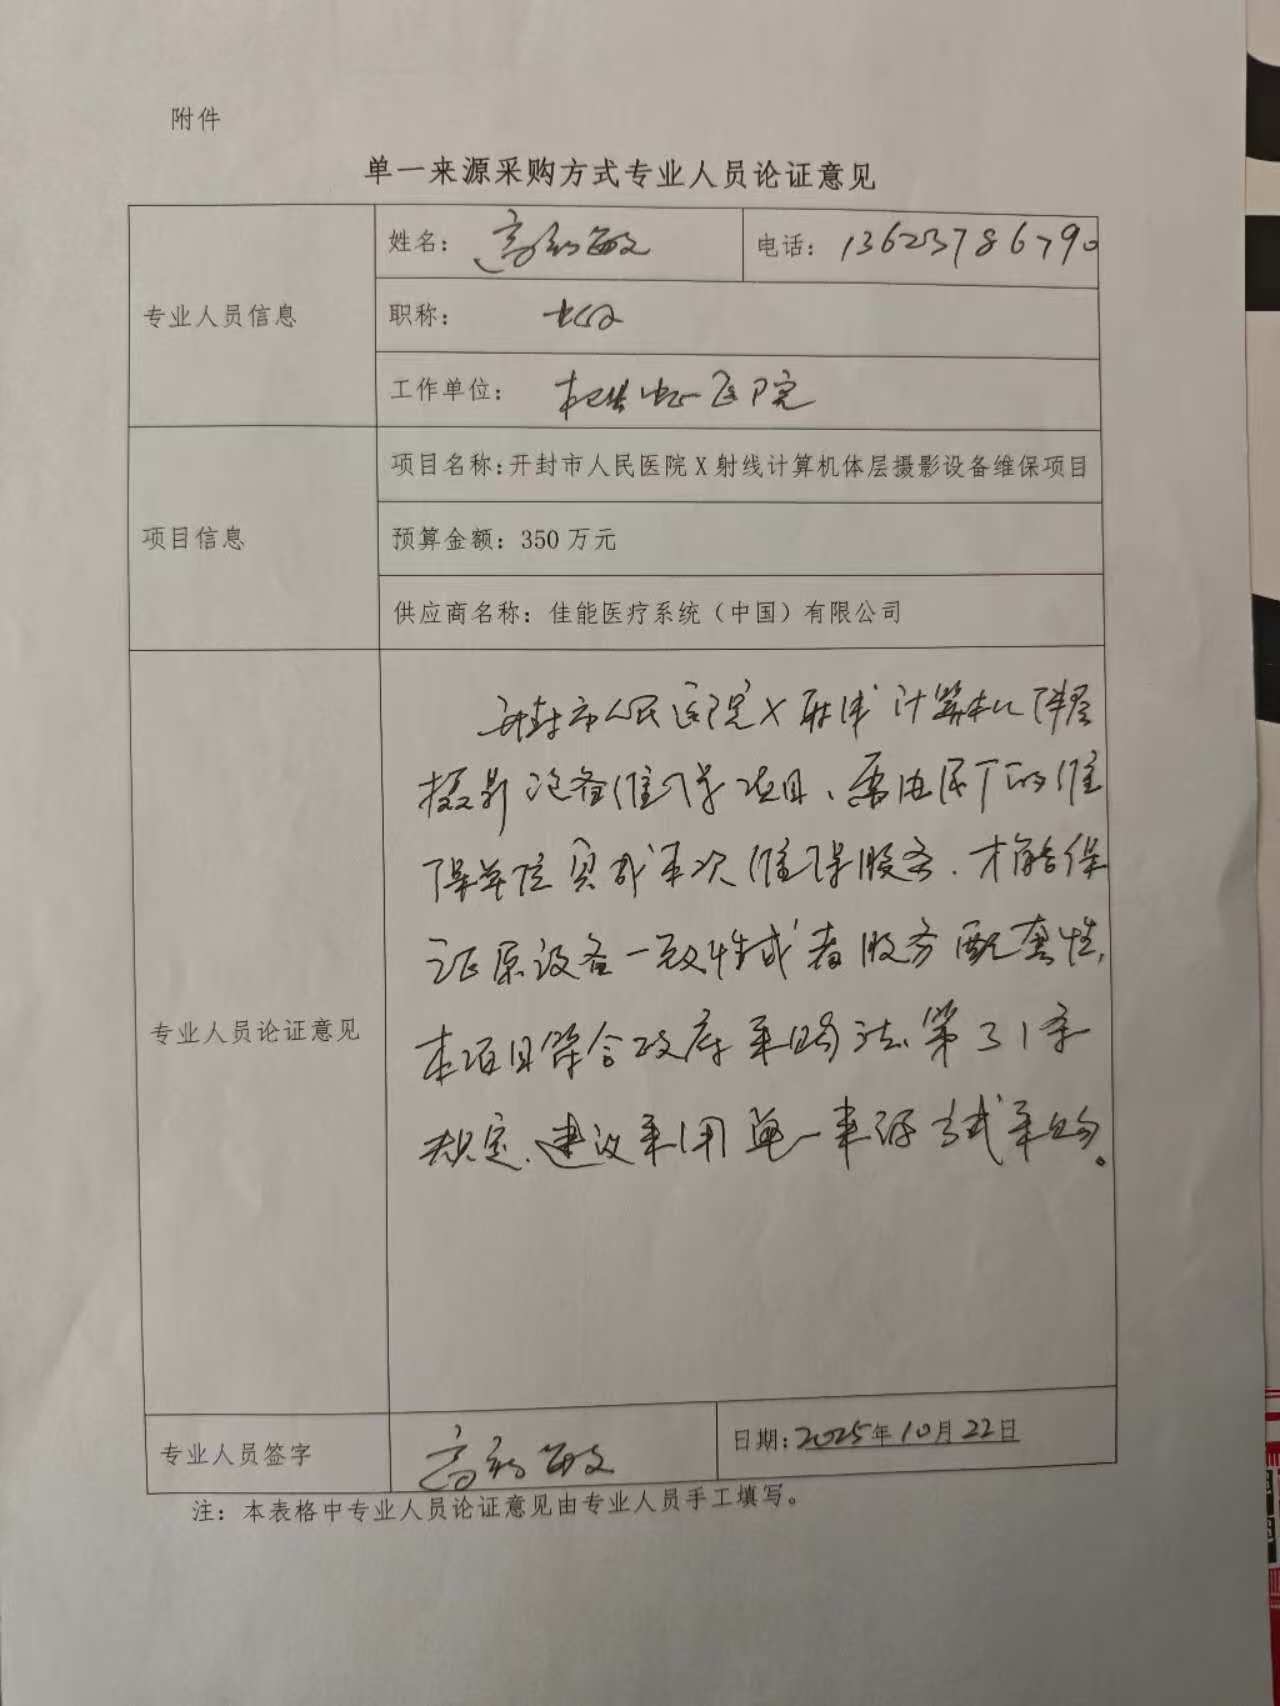 附件
单一来源采购方式专业人员论证意见
专业人员信息
姓名： 高 敏
电话： 13623786790
职称：
工作单位： 医院
项目信息
项目名称：开封市人民医院X射线计算机体层摄影设备维保项目
预算金额：350万元
供应商名称：佳能医疗系统（中国）有限公司
专业人员论证意见
开封市人民医院X射线计算机体层
摄影设备维保项目、需由原厂的维
保单位完成本次维保服务、才能保
证原设备一致性或者服务配套性,
本项目符合政府采购法第31条
规定、建议采用单一来源方式采购。
专业人员签字
高 敏
日期：2025年10月22日
注：本表格中专业人员论证意见由专业人员手工填写。